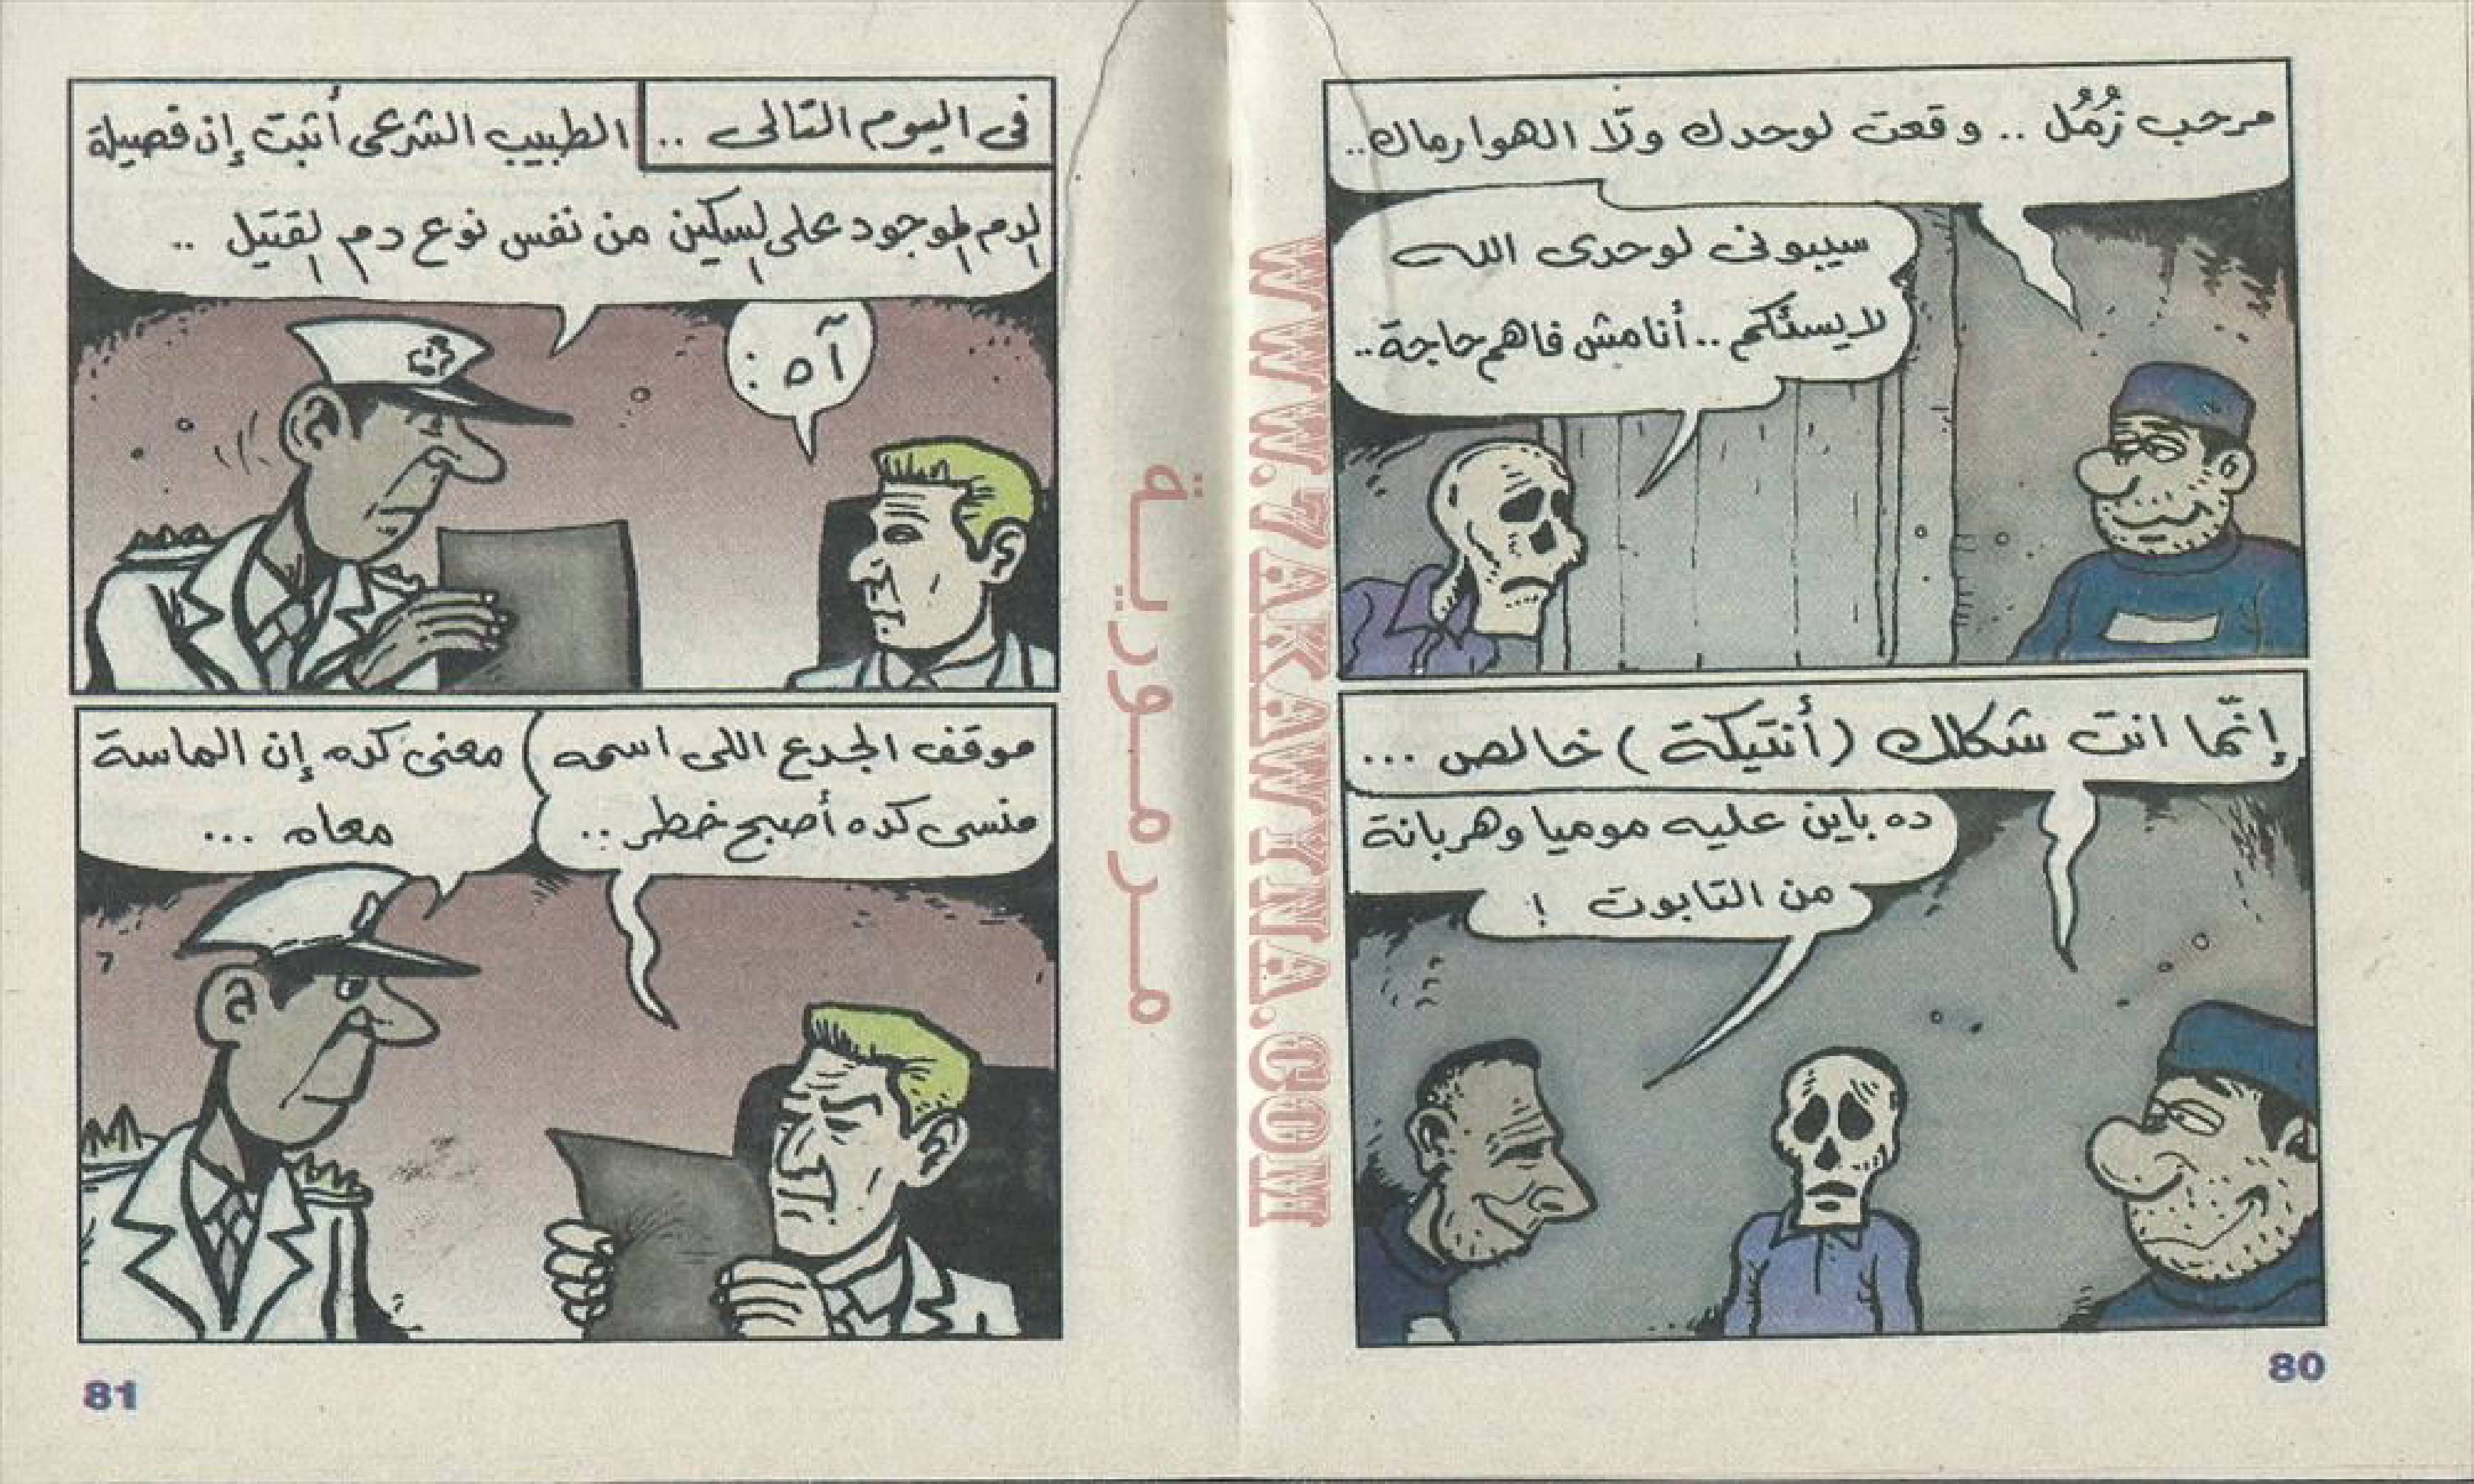 مرحب زُمُل .. وقعت لوحدك ولّا الهوا رماك ..
سيبونى لوحدى الله
لا يسئكم .. أنا مش فاهم حاجة ..
إنّما انت شكلك (أنتيكة) خالص ...
ده باين عليه موميا وهربانة
من التابوت !
80
WWW.7AKAWYNA.COM
مرمورية
فى اليوم التالى ..
الطبيب الشرعى أثبت إن فصيلة
الدم الموجود على السكين من نفس نوع دم القتيل ..
آه :
موقف الجدع اللى اسمه
منسى كده أصبح خطر ..
معنى كده إن الماسة
معاه ...
81